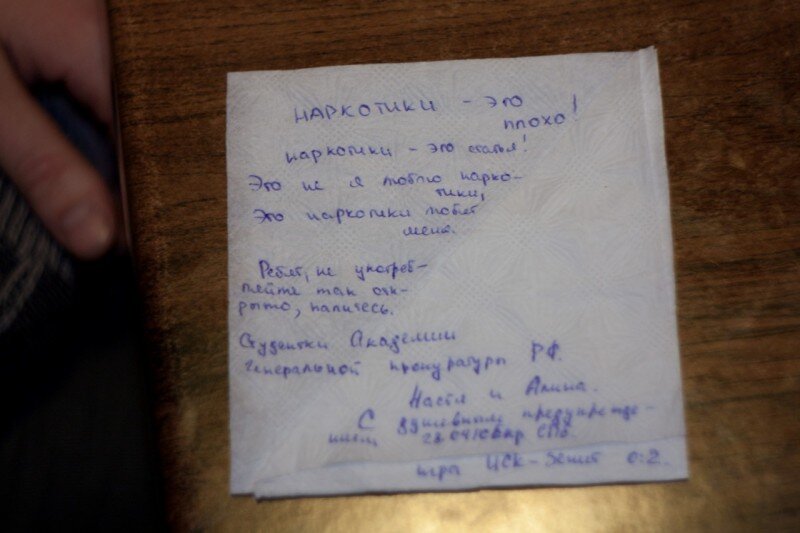 НАРКОТИКИ - это
плохо!
наркотики - это статья!
Это не я люблю нарко-
тики,
Это наркотики любят
меня.
Ребят, не употреб-
ляйте так отк-
рыто, палитесь.
Студентки Академии
Генеральной прокуратуры РФ.
Настя и Алина.
С душевным предупрежде-
нием СПб.
игра ЦСК-Зенит 0:2.